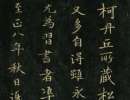 柯丹丘所藏松
又多自得頗永
尤為習書者準
至正八年秋日進